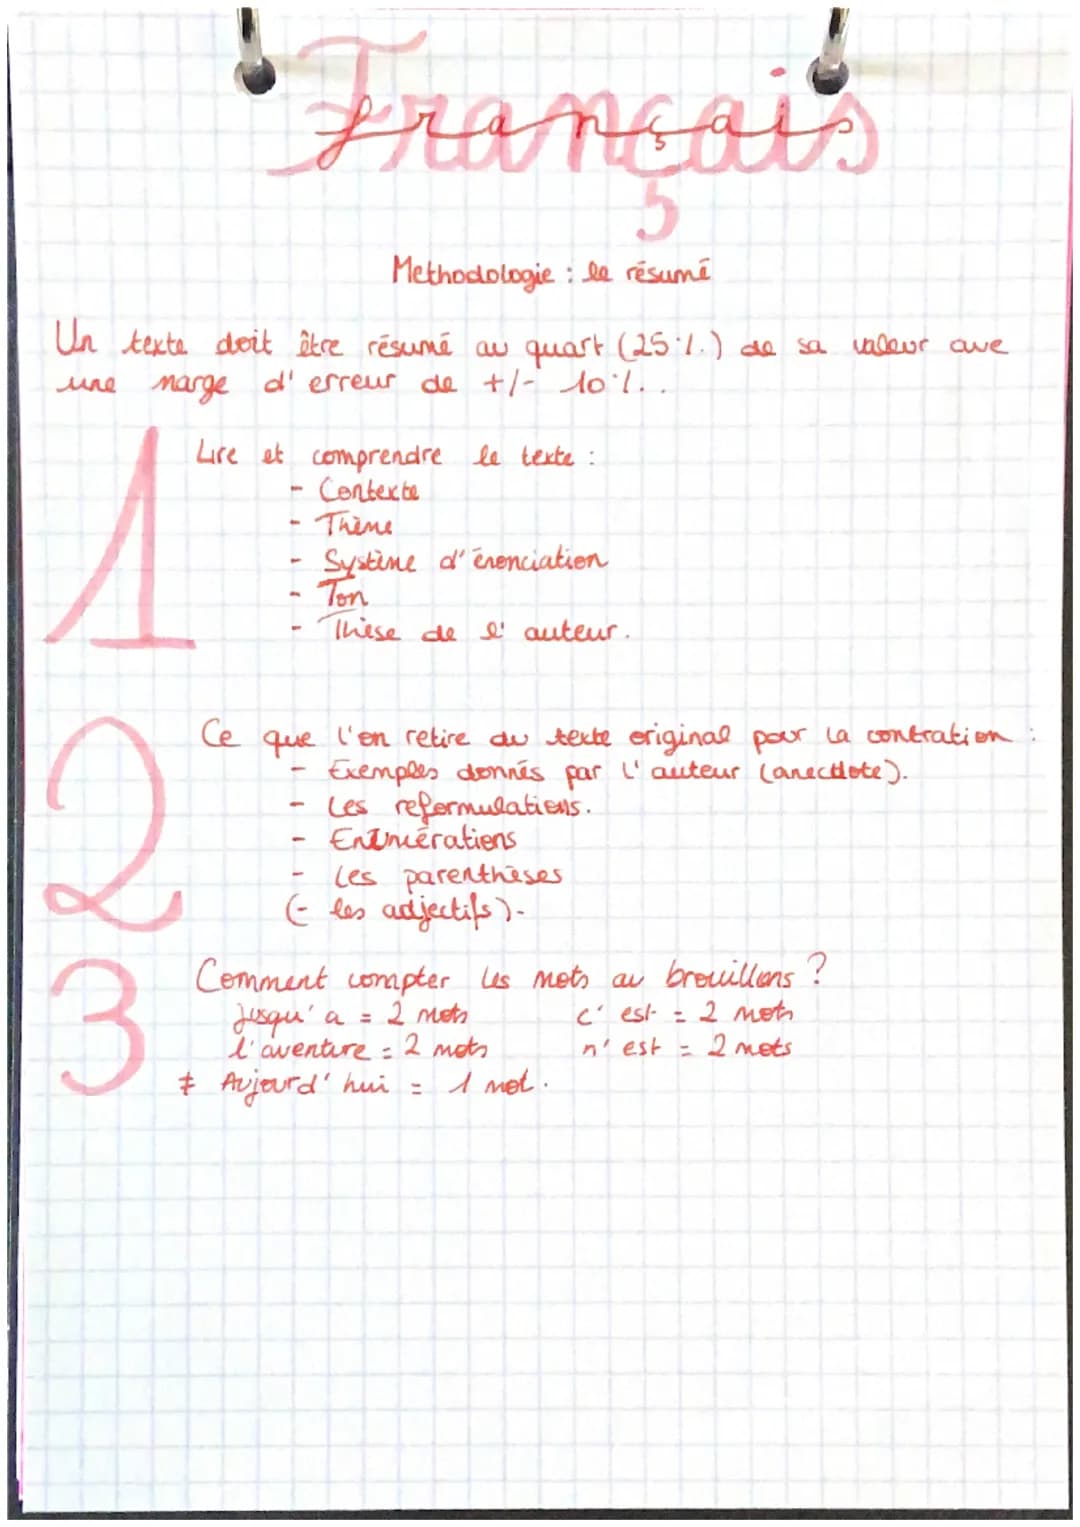 Français
Methodologie : le résumé
Un texte doit être résumé au quart (25%) de sa valeur ave
une marge d'erreur de +/- 10%.
1 Lire et comprendre le texte :
- Contexte
- Thème
- Système d'énonciation
- Ton
- Thèse de l'auteur.
2 Ce que l'on retire du texte original pour la contration :
- Exemples donnés par l'auteur (anecdote).
- Les reformulations.
- Enumérations
- Les parenthèses
(- les adjectifs).
3 Comment compter les mots au brouillons ?
Jusqu'a = 2 mots c'est = 2 mots
l'aventure = 2 mots n'est = 2 mots
≠ Aujourd'hui = 1 mot.